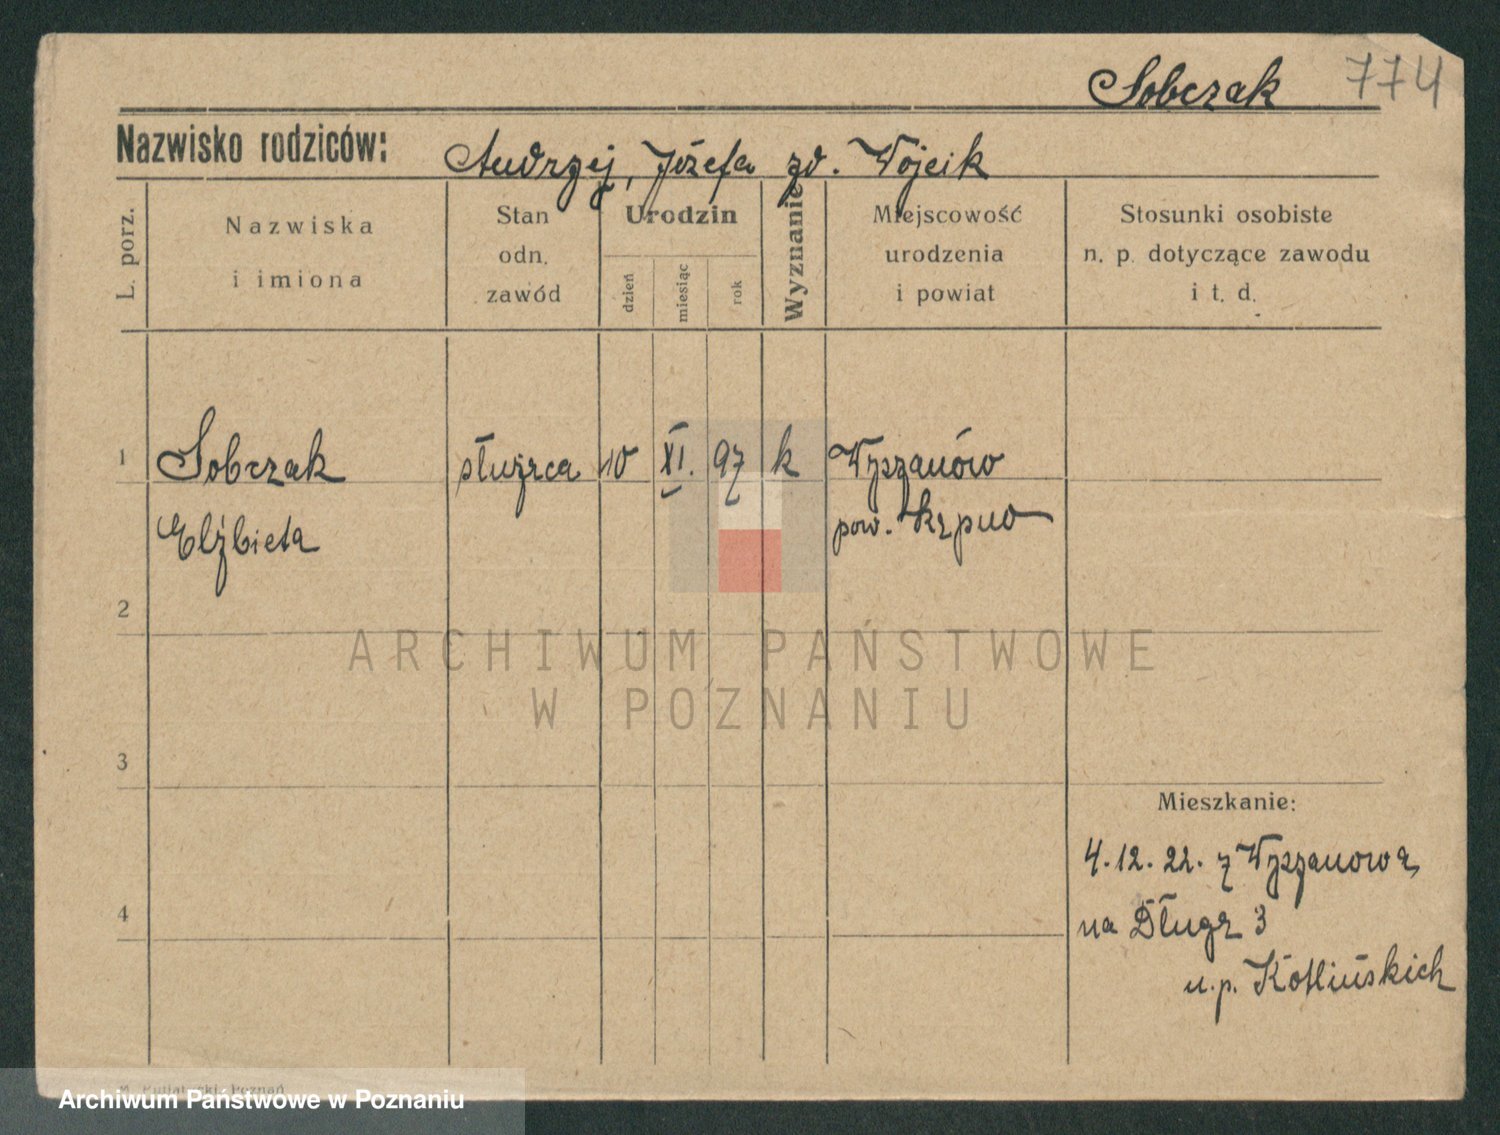 Sobczak 774
Nazwisko rodziców: Andrzej, Józefa zd. Wojcik
L. porz.
Nazwiska
i imiona
Stan
odn.
zawód
Urodzin
dzień
miesiąc
rok
Wyznanie
Miejscowość
urodzenia
i powiat
Stosunki osobiste
n. p. dotyczące zawodu
i t. d.
1 Sobczak służąca 10 XI. 97 k Wyszanów
Elżbieta pow. Kępno
2
ARCHIWUM PAŃSTWOWE
W POZNANIU
3
Mieszkanie:
4.12.22. z Wyszanowa
4
na Długą 3
u.p. Kotlińskich
Poznań
Archiwum Państwowe w Poznaniu